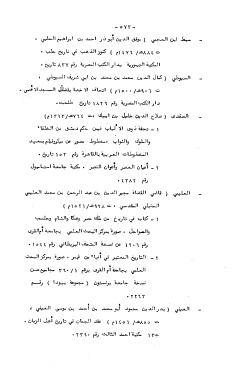 - ٥٧٢ -
- سبط ابن العجمي (موفق الدين أبو ذر احمد بن ابراهيم الحلبي
ت ٨٨٤هـ/١٤٧٩م) كنوز الذهب في تاريخ حلب .
المكتبة التيمورية بدار الكتب المصرية رقم ٨٣٧ تاريخ
- السيوطي (كمال الدين محمد بن محمد بن ابي شريف السيوطي
/١٥٠٠م) اتحاف الاخصا بفضائل المسجد الأقصى،
دار الكتب المصرية رقم ١٨٢٦ تاريخ طلعت.
- الصفدي (صلاح الدين خليل بن ايبك ت ٧٦٤هـ/١٣٦٢م)
- تحفة ذوي الألباب فيمن حكم دمشق من الخلفاء
والملوك والنواب مخطوط مصور عن ميكروفيلم بمعهد
المخطوطات العربية بالقاهرة رقم تاريخ
- أعيان العصر وأعوان النصر ، نسخة جامعة استامبول
رقم
- العليمي (قاضي القضاة مجير الدين بن عبد الرحمن بن محمد العليمي
الحنبلي المقدسي ، ت ٩٢٨هـ/١٥٢١م)
- كتاب في تاريخ من ملك مصر وعكا والشام وحلب
والسواحل ، صورة بمركز البحث العلمي بجامعة أم القرى
رقم عن نسخة المتحف البريطاني رقم ١٥٤٤
- التاريخ المعتبر في أنباء من غبر ، صورة بمركز البحث
العلمي بجامعة أم القرى رقم ٣٦٠/١ مجاميع عن
نسخة جامعة برنستون (يهودا) رقم
- العيني (بدر الدين محمود أبو محمد بن أحمد بن موسى العيني ،
ت ٨٥٥هـ/١٤٥١م) عقد الجمان في تاريخ أهل الزمان،
مكتبة احمد الثالث رقم